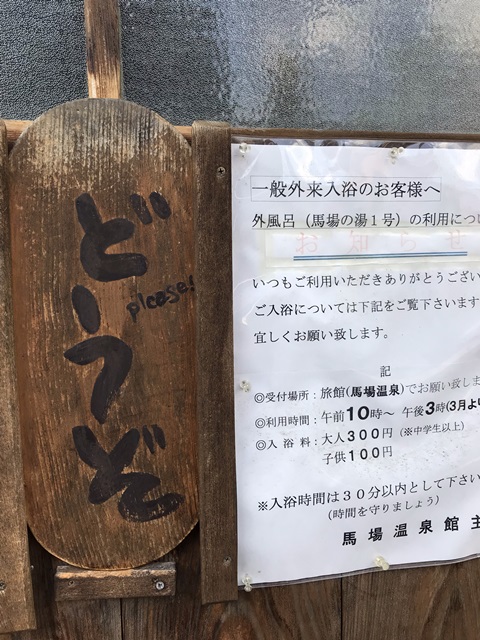 どーうぞ
please!
一般外来入浴のお客様へ
外風呂(馬場の湯1号)の利用につ
お知らせ
いつもご利用いただきありがとうござい
ご入浴については下記をご覧下さいます
宜しくお願い致します。
記
◎受付場所:旅館(馬場温泉)でお願い致しま
◎利用時間:午前10時~ 午後3時(3月よ
◎入浴料:大人300円(※中学生以上)
子供100円
※入浴時間は30分以内として下さい
(時間を守りましょう)
馬場温泉館主